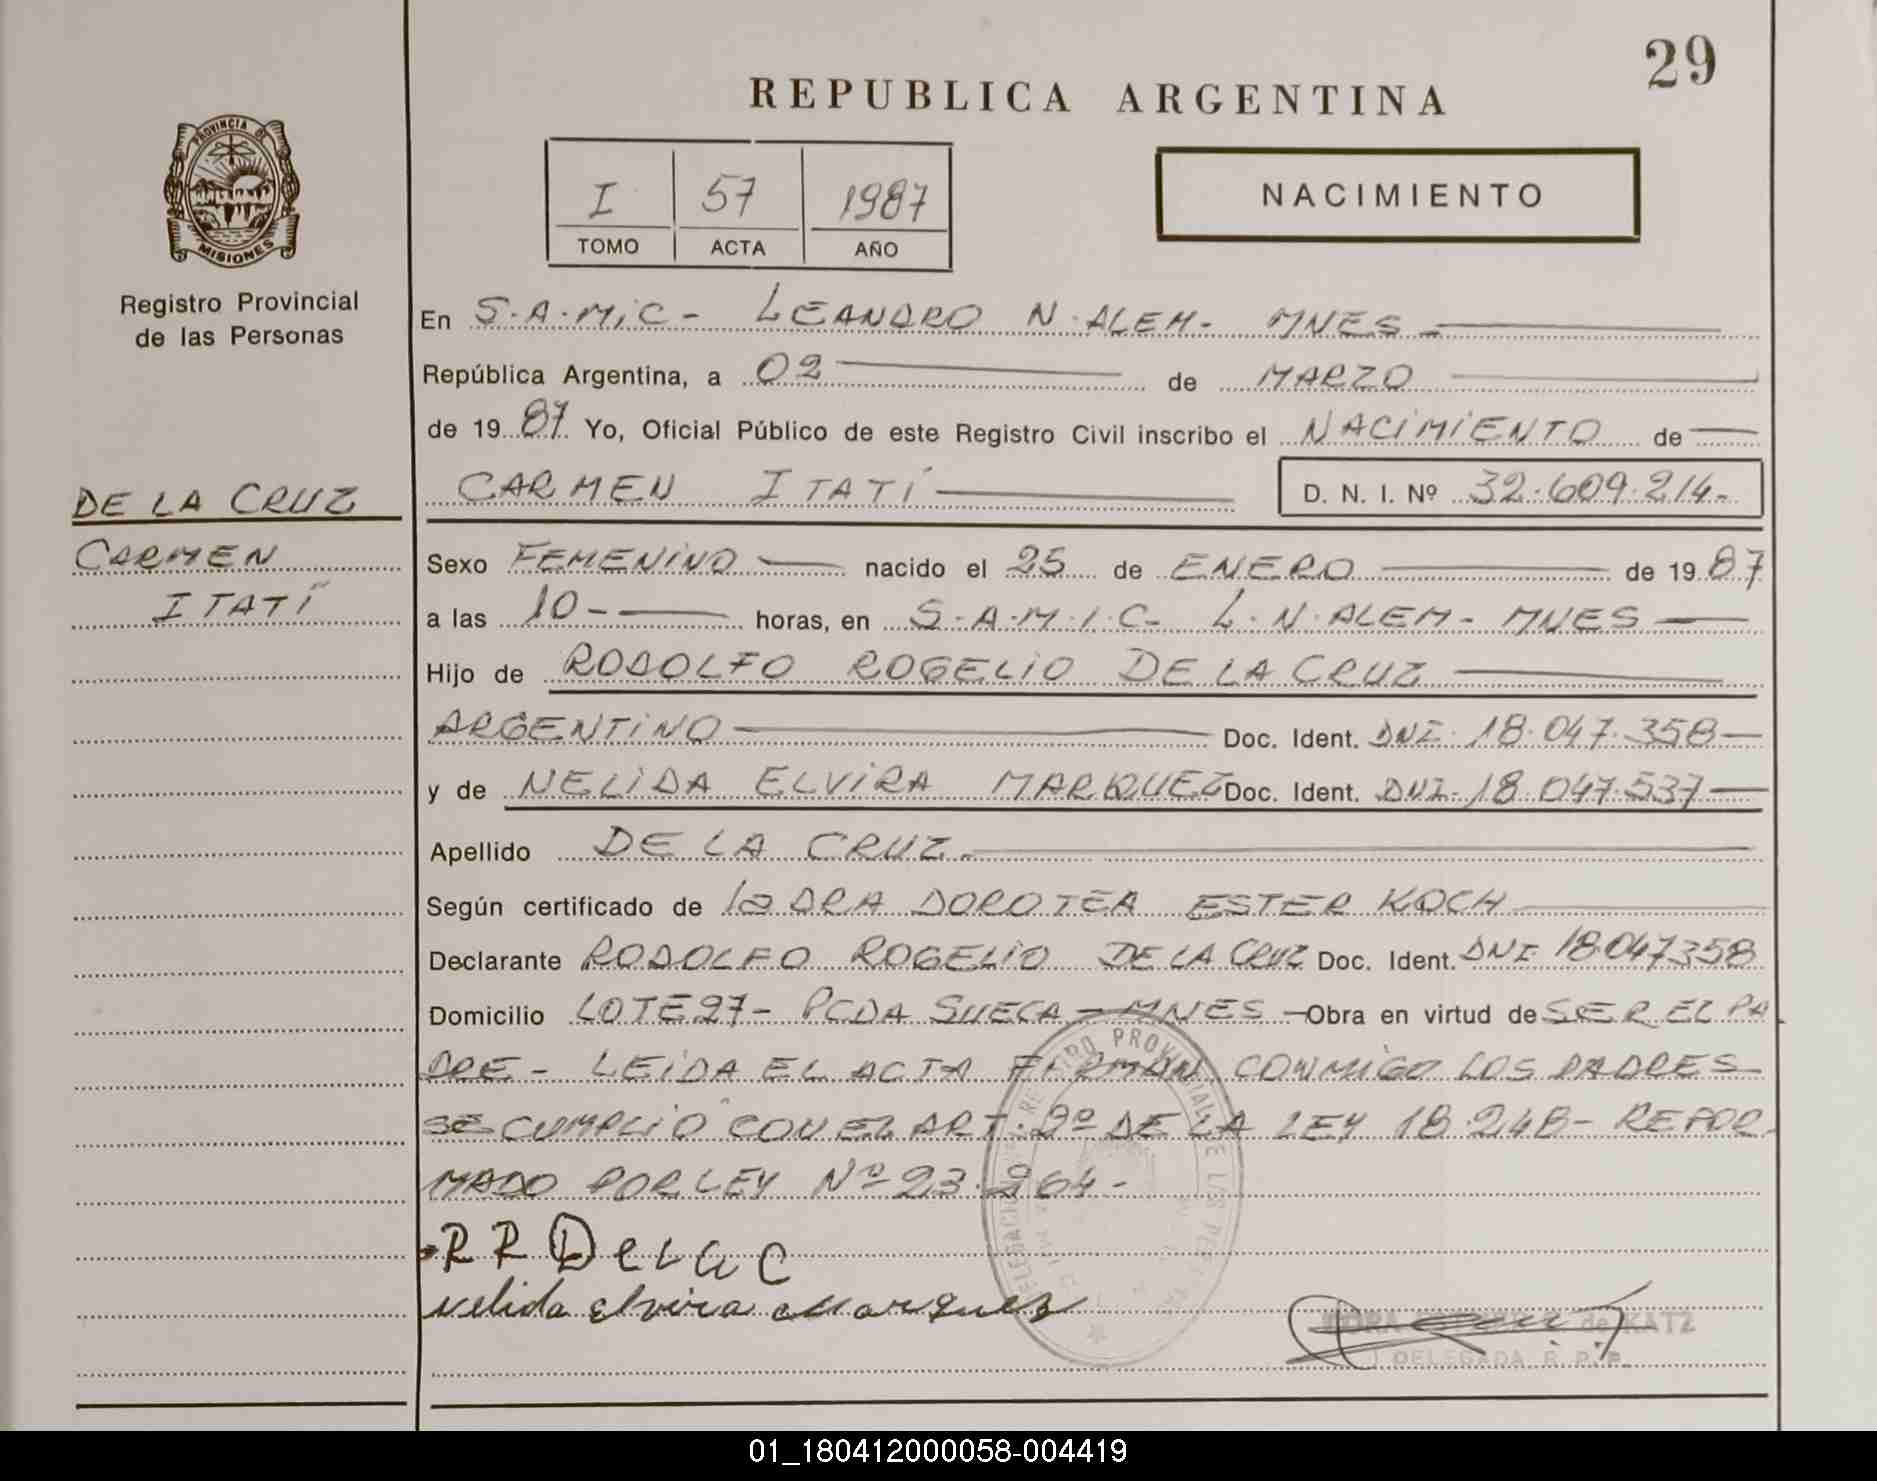 29
REPUBLICA ARGENTINA
PROVINCIA DE
MISIONES
Registro Provincial
de las Personas
I 57 1987
TOMO ACTA AÑO
NACIMIENTO
En S.A.MiC- LEANDRO N.ALEM- MNES-
República Argentina, a 02 de MARZO
de 1987 Yo, Oficial Público de este Registro Civil inscribo el NACIMIENTO de
CARMEN ITATÍ D. N. I. Nº 32.609.214-
DE LA CRUZ
CARMEN
ITATÍ
Sexo FEMENINO nacido el 25 de ENERO de 1987
a las 10- horas, en S.A.M.I.C- L.N.ALEM- MNES
Hijo de RODOLFO ROGELIO DE LA CRUZ
ARGENTINO Doc. Ident. DNI. 18.047.358
y de NELIDA ELVIRA MARQUEZ Doc. Ident. DNI. 18.047.537
Apellido DE LA CRUZ.
Según certificado de la DRA DOROTEA ESTER KOCH
Declarante RODOLFO ROGELIO DE LA CRUZ Doc. Ident. DNI 18.047358
Domicilio LOTE 27- PCDA SUECA-MNES Obra en virtud de SER EL PA
DRE- LEIDA EL ACTA FIRMAN CONMIGO LOS PADRES
SE CUMPLIÓ CON EL ART. 2º DE LA LEY 18.248- REFOR
MADO POR LEY Nº 23.264-
R R De La C
Nelida Elvira Marquez
de KATZ
DELEGADA R. P. P.
01_180412000058-004419